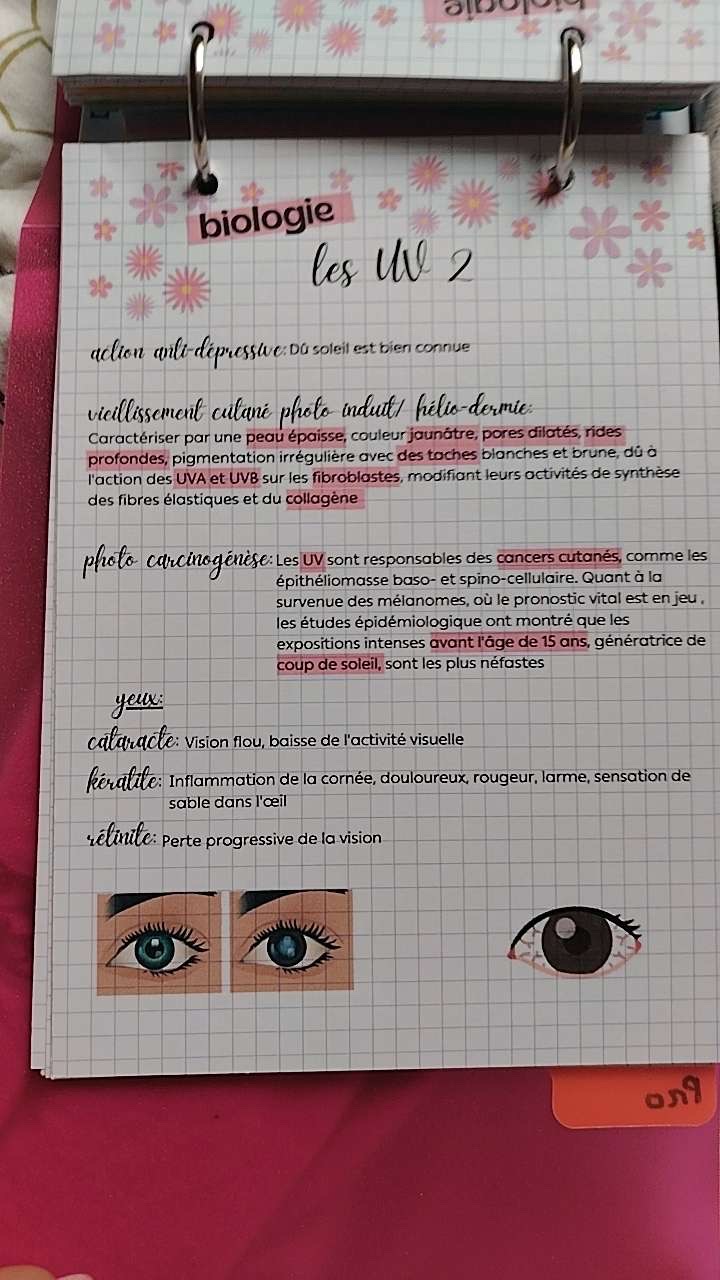 biologie
biologie
les UV 2
action anti-dépressive: Dû soleil est bien connue
vieillissement cutané photo induit/ hélio-dermie:
Caractériser par une peau épaisse, couleur jaunâtre, pores dilatés, rides
profondes, pigmentation irrégulière avec des taches blanches et brune, dû à
l'action des UVA et UVB sur les fibroblastes, modifiant leurs activités de synthèse
des fibres élastiques et du collagène
photo carcinogénèse: Les UV sont responsables des cancers cutanés, comme les
épithéliomasse baso- et spino-cellulaire. Quant à la
survenue des mélanomes, où le pronostic vital est en jeu ,
les études épidémiologique ont montré que les
expositions intenses avant l'âge de 15 ans, génératrice de
coup de soleil, sont les plus néfastes
yeux:
cataracte: Vision flou, baisse de l'activité visuelle
kératite: Inflammation de la cornée, douloureux, rougeur, larme, sensation de
sable dans l'œil
rétinite: Perte progressive de la vision
Pro